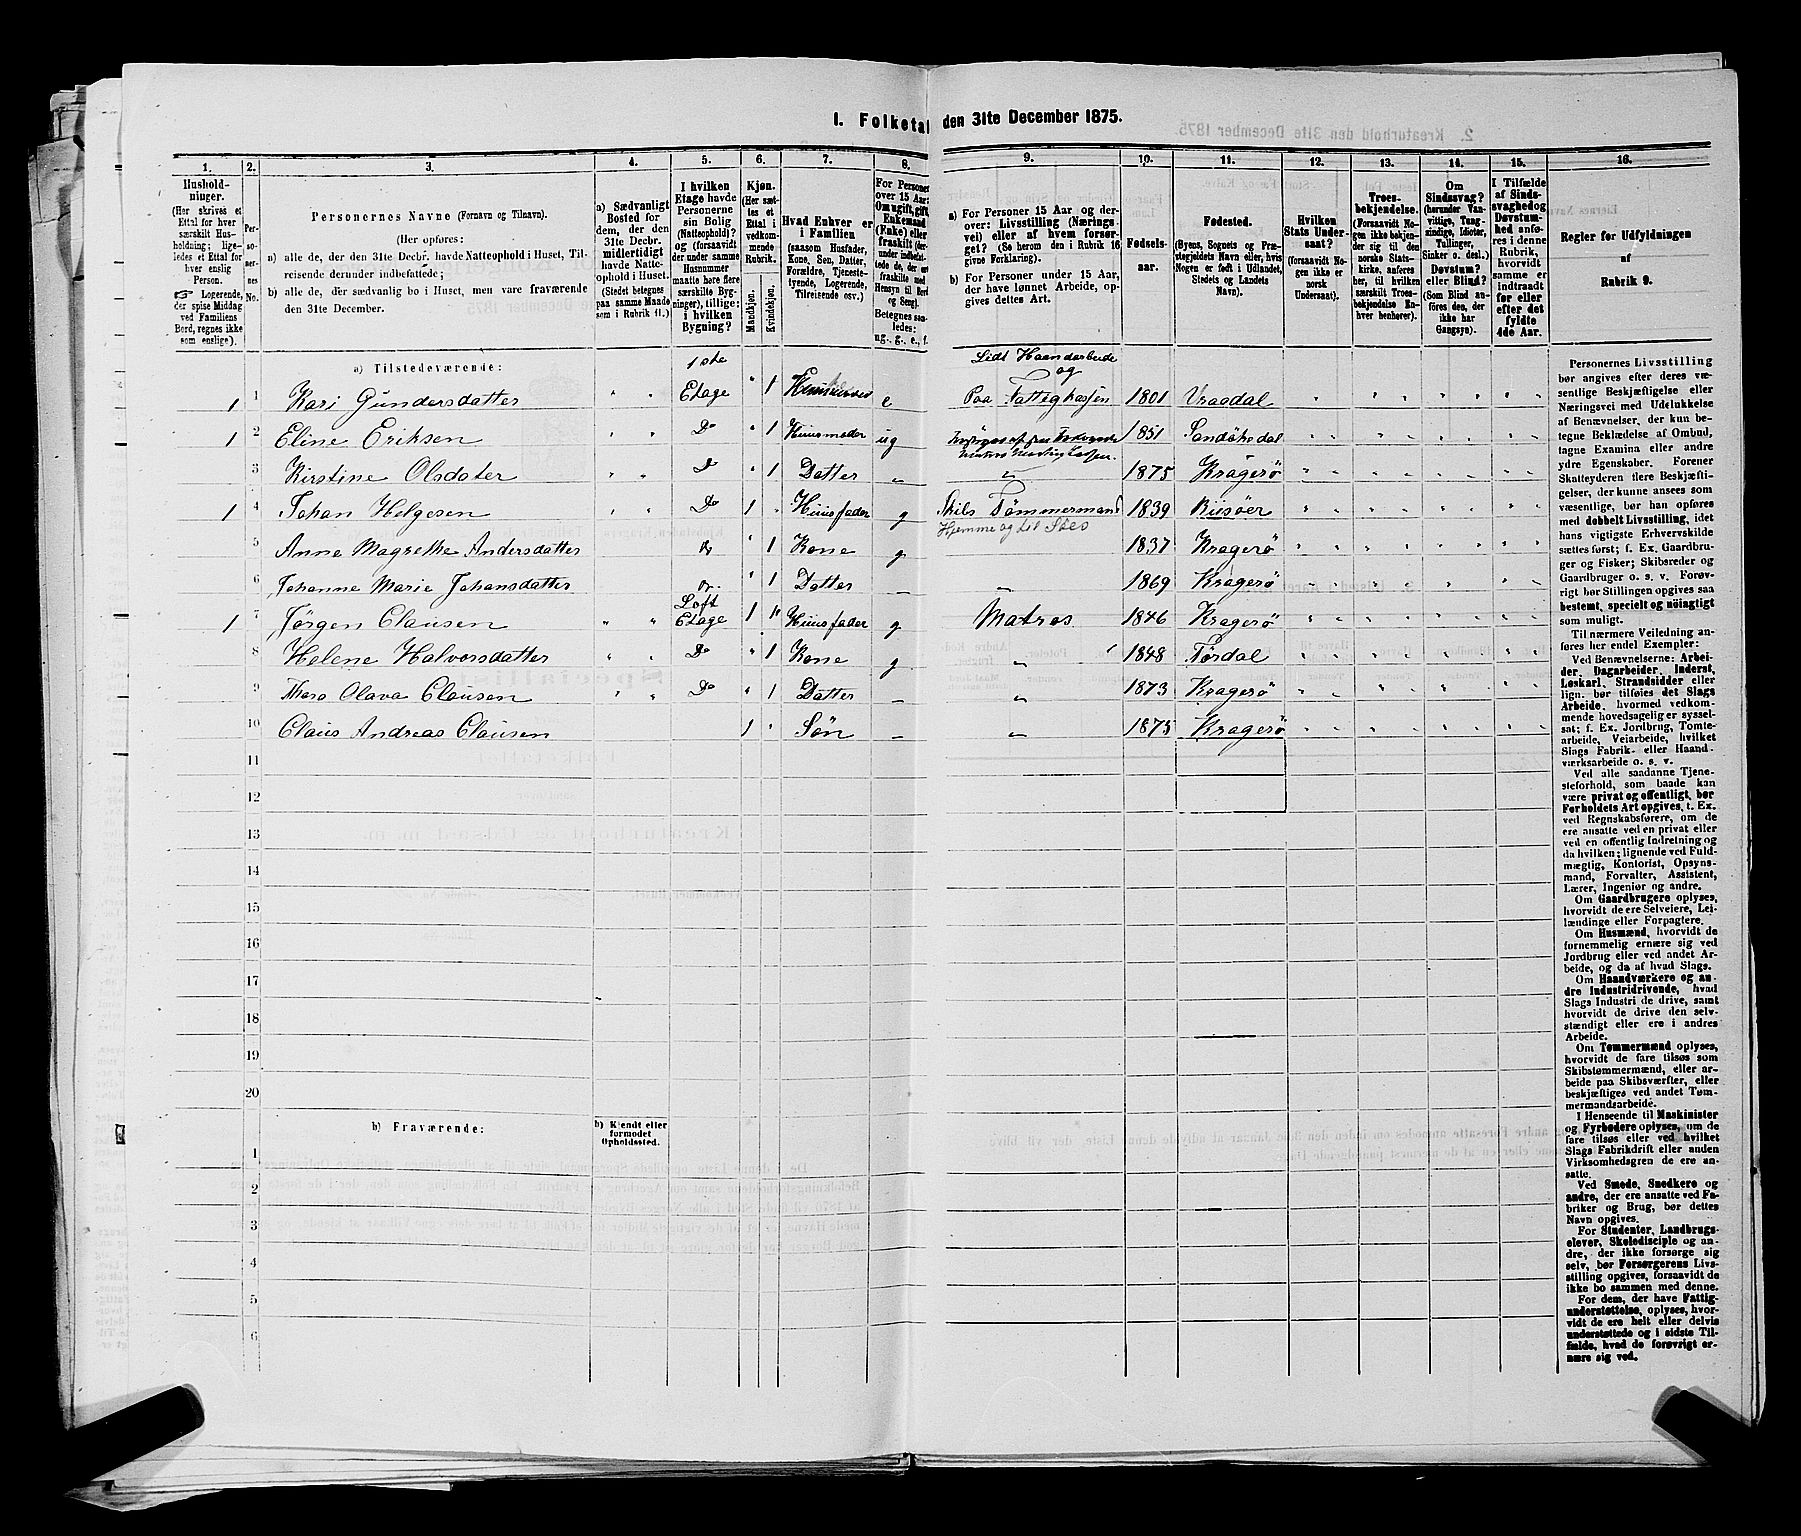 1. Folketal den 31te December 1875.
1. 2. 3. 4. 5. 6. 7. 8. 9. 10. 11. 12. 13. 14. 15. 16.
Husholdninger.
(Her skrives et
Ettal for hver
særskilt Husholdning;
ligeledes et Ettal for
hver enslig
Person.
Logerende,
der spise Middag
ved Familiens
Bord, regnes ikke
som enslige).
Personernes No.
Personernes Navne (Fornavn og Tilnavn).
(Her opføres:
a) alle de, der den 31te Decbr. havde Natteophold i Huset, Tilreisende derunder indbefattede;
b) alle de, der sædvanlig bo i Huset, men vare fraværende
den 31te December.
a) Sædvanligt
Bosted for
dem, der den
31te Decbr.
midlertidigt
havde Natteophold
i Huset.
(Stedet betegnes
paa samme Maade
som i Rubrik 11.)
I hvilken
Etage havde
Personerne
sin Bolig
(Natteophold)?
og (forsaavidt
der under samme
Husnummer
maatte høre flere
særskilte Bygninger),
tillige:
i hvilken
Bygning?
Kjøn.
(Her sættes
et
Ettal i
vedkommende
Rubrik.
Mandkjøn.
Kvindekjøn.
Hvad Enhver er
i Familien
(saasom Husfader,
Kone, Søn, Datter,
Forældre, Tjenestetyende,
Logerende,
Tilreisende osv.)
For Personer
over 15 Aar:
Om ugift, gift,
Enkemand
(Enke) eller
fraskilt
Betegnes saaledes:
ug., g., e., f.
a) For Personer 15 Aar og derover:
Livsstilling (Næringsvei)
eller af hvem forsørget?
(Se herom den i Rubrik 16
givne Forklaring).
b) For Personer under 15 Aar,
der have lønnet Arbeide, opgives
dettes Art.
Fødselsaar.
Fødested.
(Byens, Sognets og Præstegjeldets
Navn eller, hvis
Nogen er født i Udlandet,
Stedets og Landets
Navn).
Hvilken
Stats Undersaat?
(forsaavidt Nogen
ikke er
norsk
Undersaat).
Troesbekjendelse.
(Forsaavidt Nogen
ikke bekjender
sig til den
norske Statskirke,
anføres
her, til hvilken
særskilt Troesbekjendelse
Enhver
henhører).
Om
Sindssvag?
(herunder Vanvittige,
Tungsindige,
Idioter,
Tullinger,
Sinker o. desl.)
Døvstum?
eller Blind?
(Som Blind anføres
den, der
ikke har
Gangsyn).
I Tilfælde
af Sindssvaghed
og
Døvstumhed
anføres
i denne
Rubrik,
hvorvidt
samme er
indtraadt
før eller
efter det
fyldte
4de Aar.
Regler for Udfyldningen
af
Rubrik 9.
a) Tilstedeværende:
1 Kari Gundersdatter 1 1ste Etage 1 e Lidt Haandarbeide og Paa Fattigkassen 1801 Vraadal
2 Eline Eriksen 1 Do 1 Huusmoder ug 1851 Sandökedal
3 Kirstine Olsdater Do 1 Datter 1875 Kragerö
4 Johan Helgesen 1 Do 1 Huusfader g Skibs Tömmermand Hjemme og til Söes 1839 Riisöer
5 Anne Magrethe Andersdatter Do 1 Kone g 1837 Kragerö
6 Johanne Marie Johansdatter Do 1 Datter 1869 Kragerö
7 Jörgen Clausen 1 Loft Etage 1 Huusfader g Matros 1846 Kragerö
8 Helene Halvorsdatter Do 1 Kone g 1848 Tördal
9 Thara Olava Clausen Do 1 Datter 1873 Kragerö
10 Claus Andreas Clausen 1 Søn 1875 Kragerö
11
12
13
14
15
16
17
18
19
20
b) Fraværende:
b) Kjendt eller
formodet
Opholdssted.
1
2
3
4
5
6
Personernes Livsstilling
bør angives efter deres væsentlige
Beskjæftigelse eller
Næringsvei med Udelukkelse
af Benævnelser, der kun betegne
Beklædelse af Ombud,
tagne Examina eller andre
ydre Egenskaber. Forener
Skatteyderen flere Beskjæftigelser,
der kunne ansees som
væsentlige, bør han opføres
med dobbelt Livsstilling, idet
hans vigtigste Erhvervskilde
sættes først; f. Ex. Gaardbruger
og Fisker; Skibsreder og
Gaardbruger o. s. v. Forøvrigt
bør Stillingen opgives saa
bestemt, specielt og nöiagtigt
som muligt.
Til nærmere Veiledning anføres
her endel Exempler:
Ved Benævnelserne: Arbeider,
Dagarbeider, Inderst,
Løskarl, Strandsidder eller
lign. bør tilføies det Slags
Arbeide, hvormed vedkommende
hovedsagelig er sysselsat;
f. Ex. Jordbrug, Tomtearbeide,
Veiarbeide, hvilket
Slags Fabrik- eller Haandværksarbeide
o. s. v.
Ved alle saadanne Tjenesteforhold,
som baade kan
være privat og offentligt, bør
Forholdets Art opgives, t. Ex.
ved Regnskabsførere, om de
ere ansatte ved en privat eller
ved en offentlig Indretning og
da hvilken; lignende ved Fuldmægtig,
Kontorist, Opsynsmand,
Forvalter, Assistent,
Lærer, Ingeniør og andre.
Om Gaardbrugere oplyses,
hvorvidt de ere Selveiere, Leilændinge
eller Forpagtere.
Om Husmænd, hvorvidt de
fornemmelig ernære sig ved
Jordbrug eller ved andet Arbeide,
og da af hvad Slags.
Om Haandværkere og andre
Industridrivende, hvad
Slags Industri de drive, samt
hvorvidt de drive den selvstændigt
eller ere i andres
Arbeide.
Om Tømmermænd oplyses,
hvorvidt de fare tilsøs som
Skibstømmermænd, eller arbeide
paa Skibsværfter, eller
beskjæftiges ved andet Tømmermandsarbeide.
I Henseende til Maskinister
og Fyrbødere oplyses, om de
fare tilsøs eller ved hvilket
Slags Fabrikdrift eller anden
Virksomhedsgren de ere ansatte.
Ved Smede, Snedkere og
andre, der ere ansatte ved Fabriker
og Brug, bør dettes
Navn opgives.
For Studenter, Landbrugselever,
Skoledisciple og andre,
der ikke forsørge sig
selv, bør Forsørgerens Livsstilling
opgives, forsaavidt de
ikke bo sammen med denne.
For dem, der have Fattigunderstøttelse,
oplyses, hvorvidt
de ere helt eller delvis
understøttede og i sidste Tilfælde,
hvad de forøvrigt ernære
sig ved.